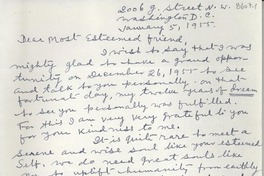 2006 G. Street N. W. 8607-1
Washington D. C.
January 5, 1955.
Dear Most Esteemed friend,
I wish to say that I was
mighty glad to have a grand oppor-
tunity on December 26, 1955 to see
and talk to you personally. On that
fortunate day, my twelve years of dream
to see you personally was fulfilled.
For this I am very very grateful to you
for your kindness to me.
It is quite rare to meet a
serene and wise soul like your esteemed
Self. We do need great souls like
to uplift humanity from earthly